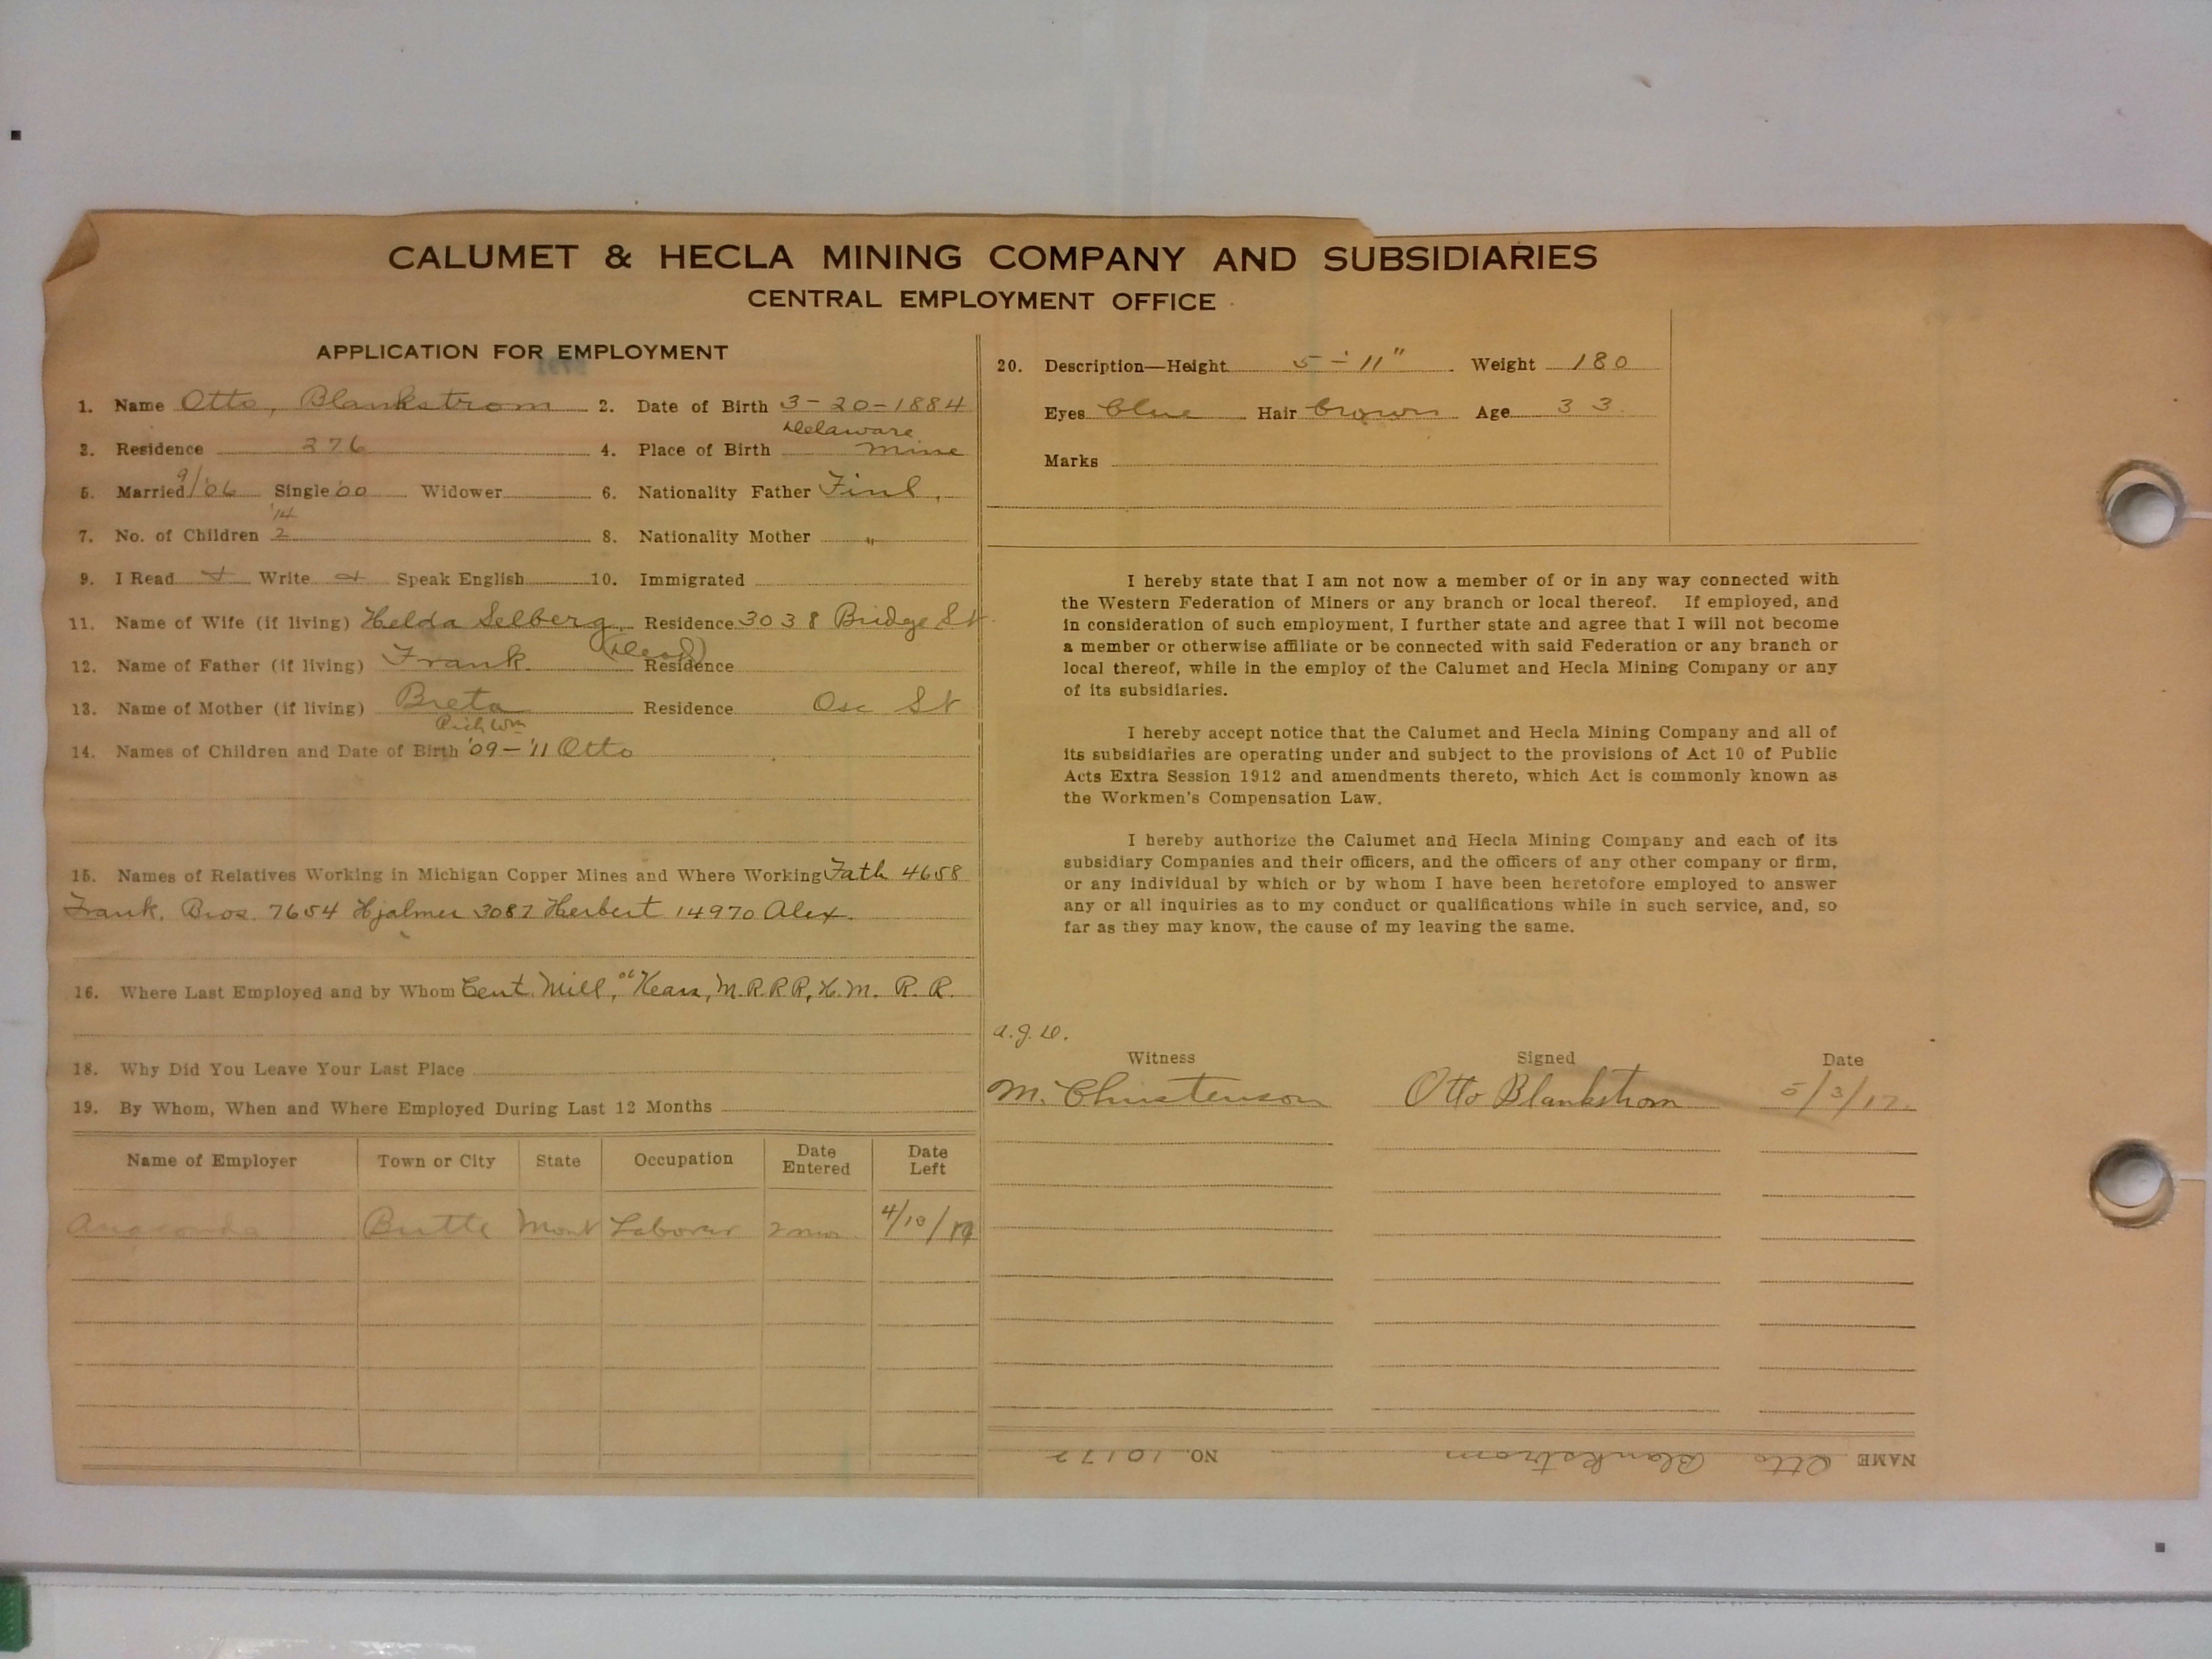 CALUMET & HECLA MINING COMPANY AND SUBSIDIARIES
CENTRAL EMPLOYMENT OFFICE
APPLICATION FOR EMPLOYMENT
1. Name Otto, Blankstrom 2. Date of Birth 3-20-1884
3. Residence 376 4. Place of Birth Delaware Mine
5. Married 9/06 Single '00 Widower 6. Nationality Father Finl.
'14
7. No. of Children 2 8. Nationality Mother "
9. I Read Write Speak English 10. Immigrated
11. Name of Wife (if living) Helda Selberg Residence 3038 Bridge St
12. Name of Father (if living) Frank (Dead) Residence
13. Name of Mother (if living) Breta Residence Osc St
Rich Wm
14. Names of Children and Date of Birth '09-'11 Otto
15. Names of Relatives Working in Michigan Copper Mines and Where Working Fath 4658
Frank. Bros. 7654 Hjalmer 3087 Herbert 14970 Alex.
16. Where Last Employed and by Whom Cent. Mill, M.R.R.R, H.M. R. R.
18. Why Did You Leave Your Last Place
19. By Whom, When and Where Employed During Last 12 Months
Name of Employer Town or City State Occupation Date Entered Date Left
Anaconda Butte Mont Laborer 2 mos 4/10/17
20. Description—Height 5-11" Weight 180
Eyes blue Hair brown Age 33
Marks
I hereby state that I am not now a member of or in any way connected with
the Western Federation of Miners or any branch or local thereof. If employed, and
in consideration of such employment, I further state and agree that I will not become
a member or otherwise affiliate or be connected with said Federation or any branch or
local thereof, while in the employ of the Calumet and Hecla Mining Company or any
of its subsidiaries.
I hereby accept notice that the Calumet and Hecla Mining Company and all of
its subsidiaries are operating under and subject to the provisions of Act 10 of Public
Acts Extra Session 1912 and amendments thereto, which Act is commonly known as
the Workmen's Compensation Law.
I hereby authorize the Calumet and Hecla Mining Company and each of its
subsidiary Companies and their officers, and the officers of any other company or firm,
or any individual by which or by whom I have been heretofore employed to answer
any or all inquiries as to my conduct or qualifications while in such service, and, so
far as they may know, the cause of my leaving the same.
Witness Signed Date
M. Christenson Otto Blankstrom 5/3/17.
NAME Otto Blankstrom NO. 10172